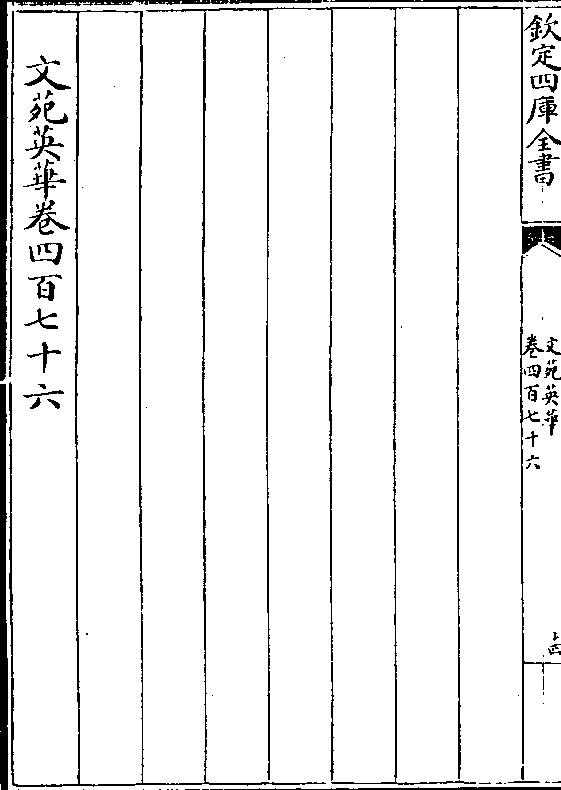 欽定四庫全書
文苑英華
卷四百七十六
文苑英華卷四百七十六